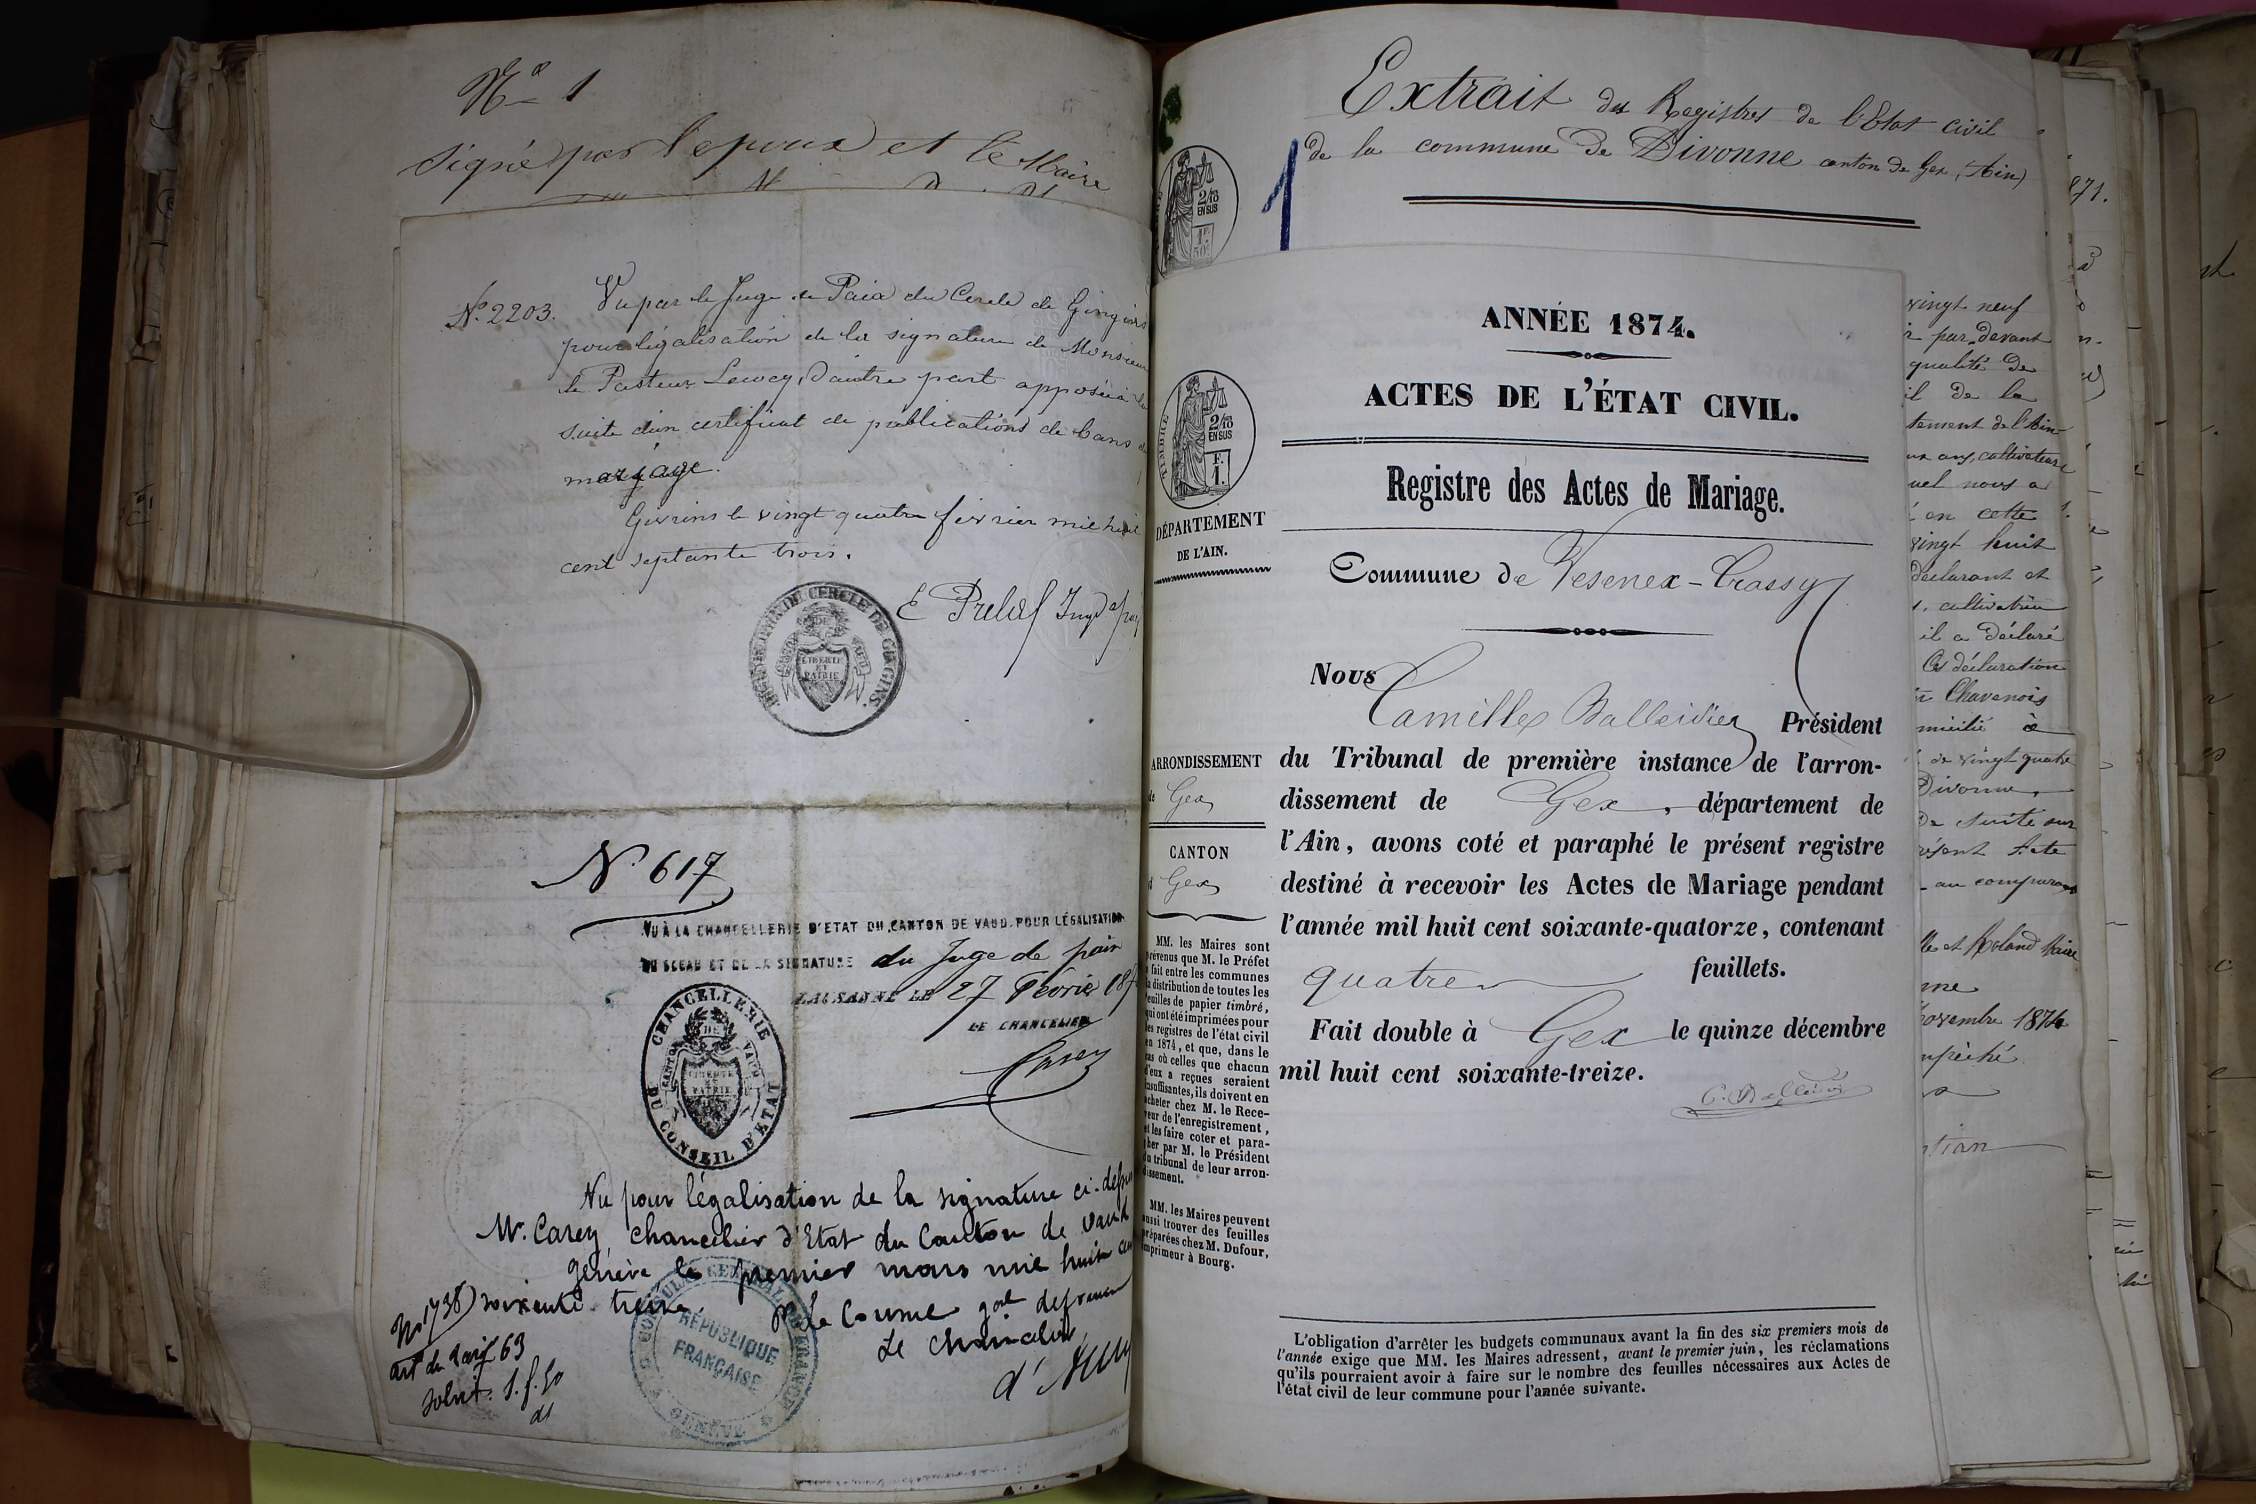 No 1
signé par l'epoux et le Maire
No. 2203.
Vu par le Juge de Paix du Cercle de Gingins
pour légalisation de la signature de Monsieur
le Pasteur d'autre part apposée à la
suite d'un certificat de publications de bans de
mariage.
Givrins le vingt quatre février mil huit
cent septante trois.
E Juge de paix
CERCLE DE GINGINS.
CANTON DE VAUD
LIBERTE
ET
PATRIE
N. 617
VU À LA CHANCELLERIE D'ETAT DU CANTON DE VAUD, POUR LÉGALISATION
DU SCEAU ET DE LA SIGNATURE du Juge de paix
LAUSANNE LE 27 Février 187
LE CHANCELIER
Carey
CHANCELLERIE DU CONSEIL D'ETAT
CANTON DE VAUD
LIBERTE
ET
PATRIE
Vu pour légalisation de la signature ci-dessus
Mr. Carey chancelier d'Etat du Canton de Vaud
genève le premier mars mil huit cent
soixante treize.
No 1738
art du tarif 63
P. le Consul gal de france
Le chancelier
CONSULAT GENERAL DE FRANCE
RÉPUBLIQUE
FRANÇAISE
GENÈVE
Extrait des Registres de l'Etat civil
de la commune de Divonne canton de Gex, (Ain)
1
2/10
EN SUS
1F.
50c
TIMBRE
2/10
EN SUS
F.
1.
ANNÉE 1874.
ACTES DE L'ÉTAT CIVIL.
Registre des Actes de Mariage.
DÉPARTEMENT
DE L'AIN.
Commune de Vesenex-Crassy
Nous
Camille Balleidier Président
du Tribunal de première instance de l'arron-
dissement de Gex, département de
l'Ain, avons coté et paraphé le présent registre
destiné à recevoir les Actes de Mariage pendant
l'année mil huit cent soixante-quatorze, contenant
quatre feuillets.
Fait double à Gex le quinze décembre
mil huit cent soixante-treize.
C. Balleidier
ARRONDISSEMENT
de Gex
CANTON
d Gex
MM. les Maires sont
prévenus que M. le Préfet
a fait entre les communes
la distribution de toutes les
feuilles de papier timbré,
qui ont été imprimées pour
les registres de l'état civil
en 1874, et que, dans le
cas où celles que chacun
d'eux a reçues seraient
insuffisantes, ils doivent en
acheter chez M. le Rece-
veur de l'enregistrement,
et les faire coter et para-
pher par M. le Président
du tribunal de leur arron-
dissement.
MM. les Maires peuvent
aussi trouver des feuilles
préparées chez M. Dufour,
imprimeur à Bourg.
L'obligation d'arrêter les budgets communaux avant la fin des six premiers mois de
l'année exige que MM. les Maires adressent, avant le premier juin, les réclamations
qu'ils pourraient avoir à faire sur le nombre des feuilles nécessaires aux Actes de
l'état civil de leur commune pour l'année suivante.
871.
vingt neuf
par devant
qualité de
il de la
tement de l'Ain
ans, cultivateur
uel nous a
en cette
vingt huit
déclarant et
cultivateur
il a déclaré
déclaration
Chavanois
micilié à
de vingt quatre
Divonne,
de suite sur
résent Acte
au comparant
et Roland Maire
nne
Novembre 1874
mpêché